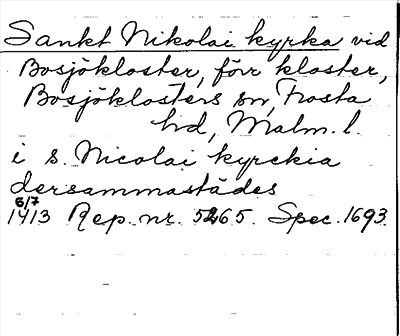 Sankt Nikolai kyrka vid
Bosjökloster, förr kloster,
Bosjöklosters sn, Frosta
hd, Malm. l.
i s. Nicolai kyrckia
dersammastädes
6/7
1413 Rep. nr. 5265. Spec. 1693.